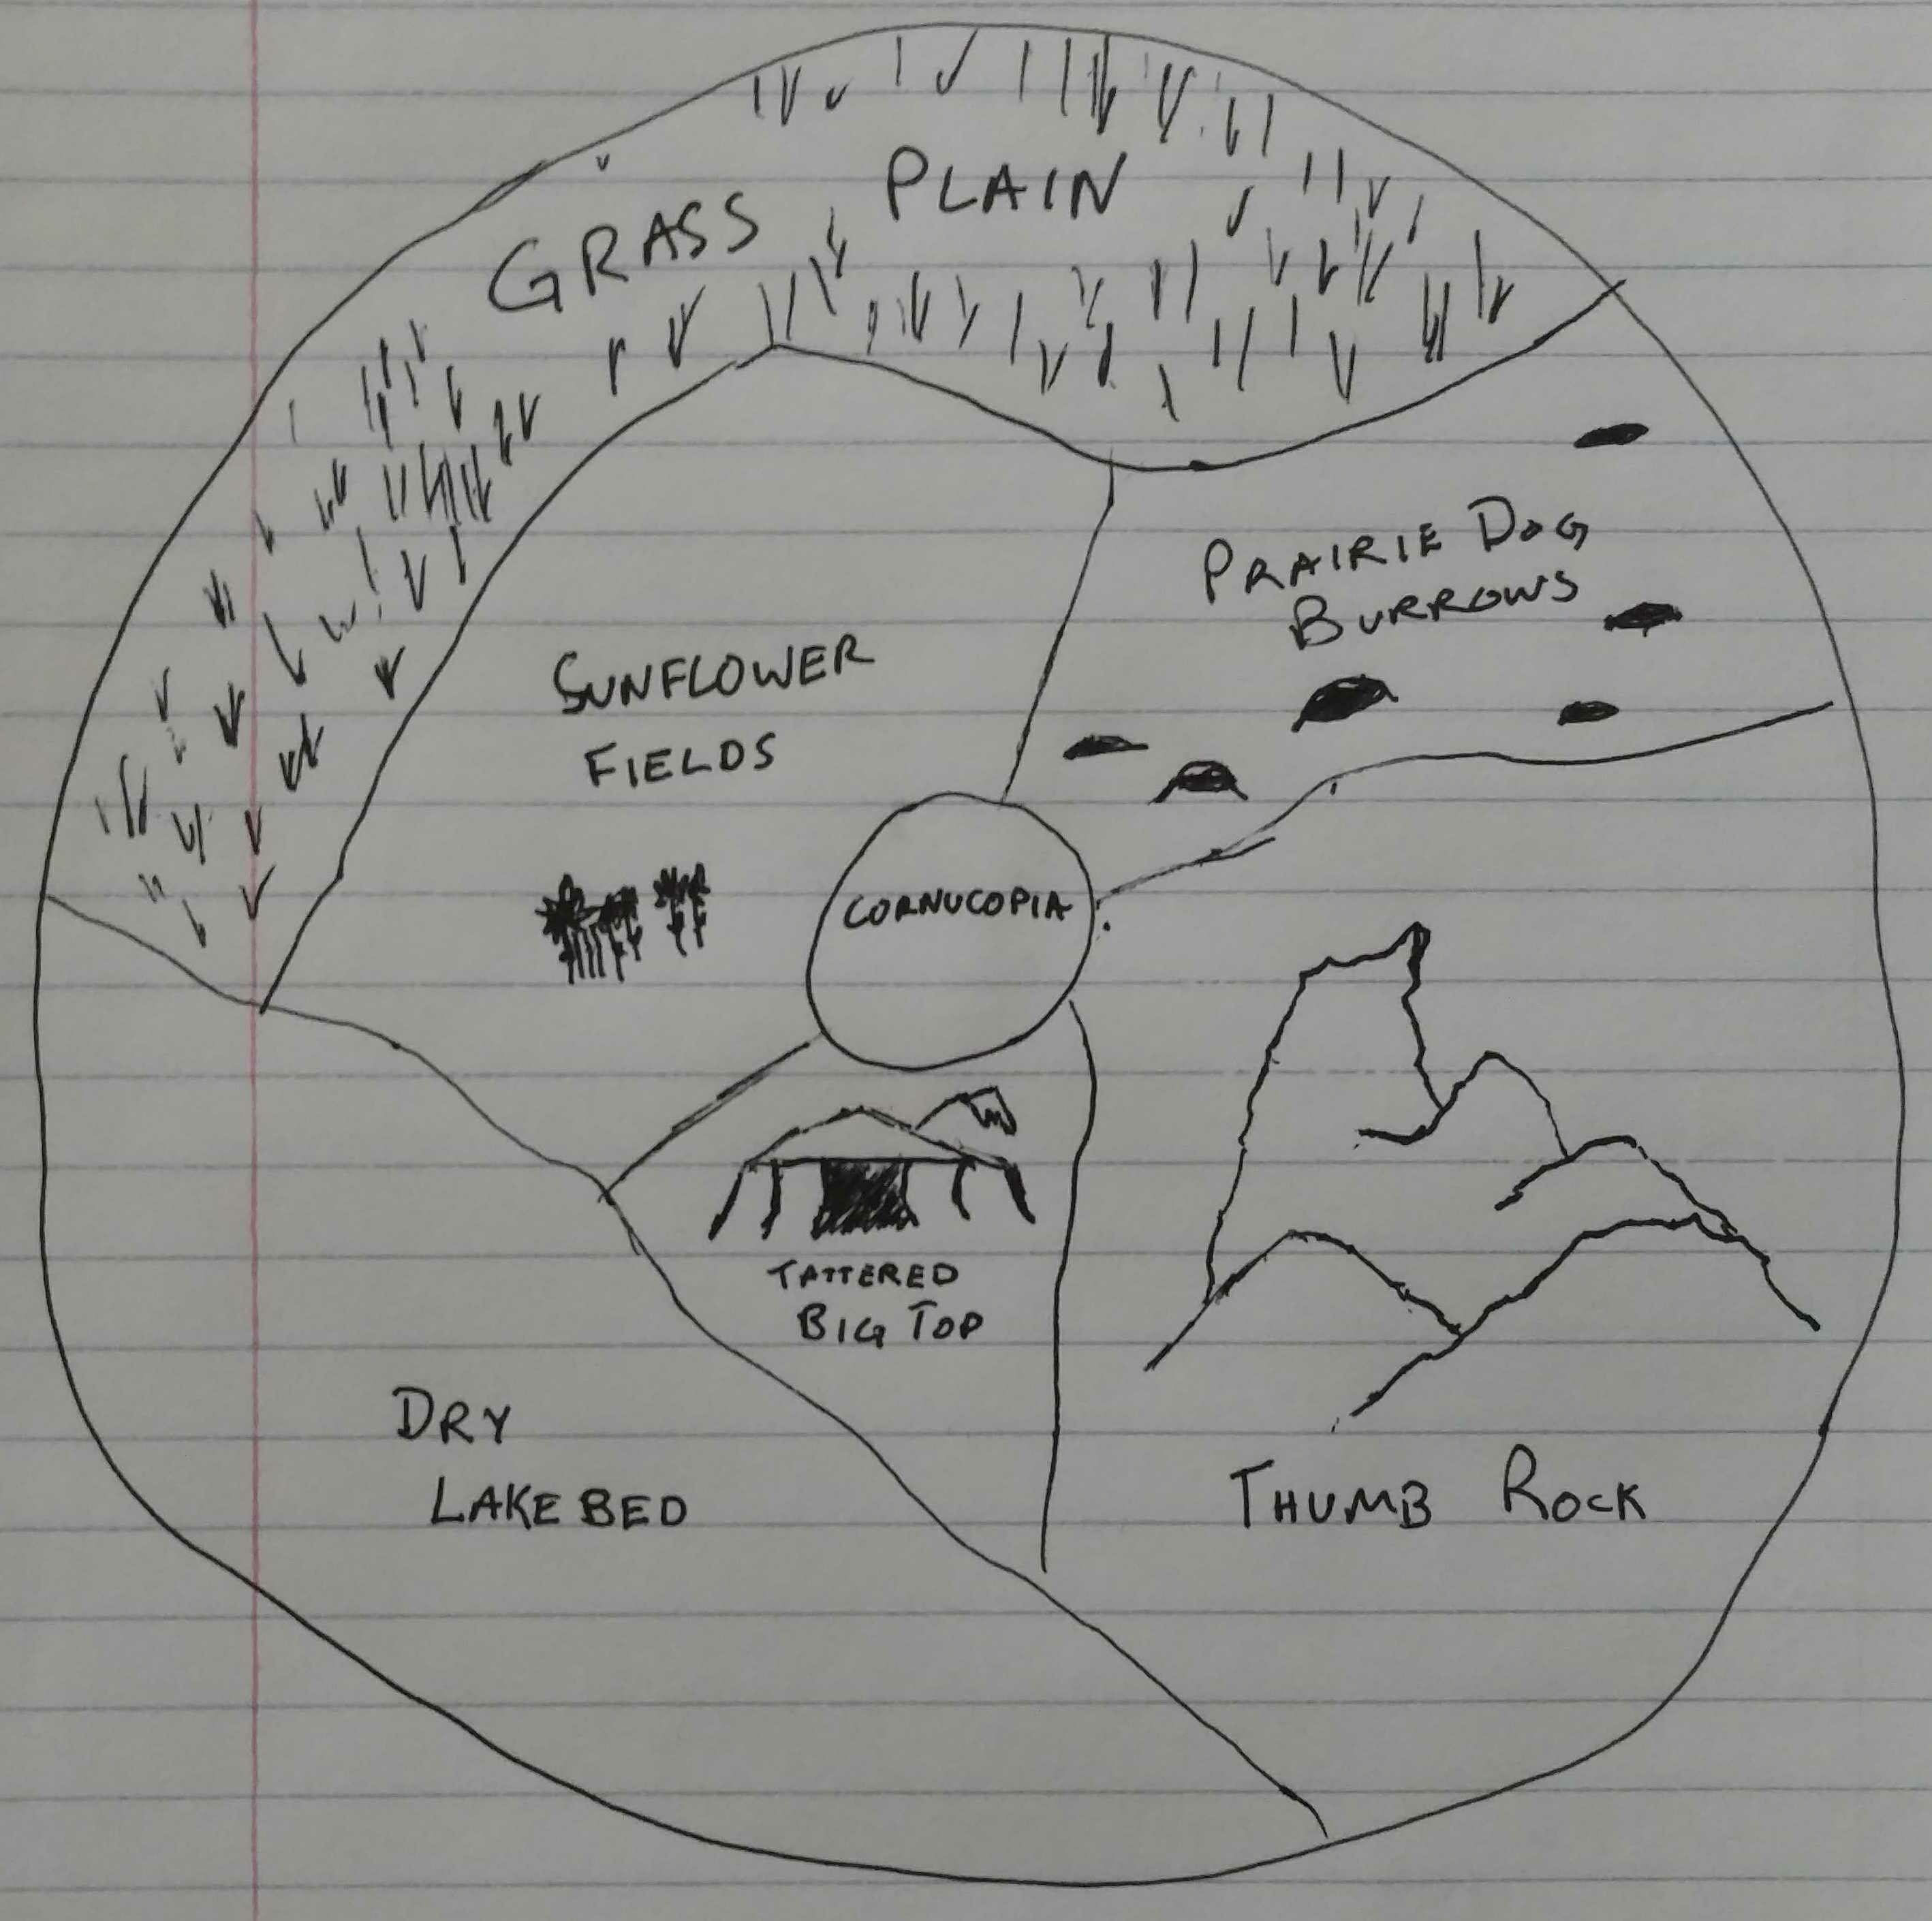 GRASS PLAIN
PRAIRIE DOG
BURROWS
SUNFLOWER
FIELDS
CORNUCOPIA
TATTERED
BIG TOP
DRY
LAKE BED
THUMB ROCK